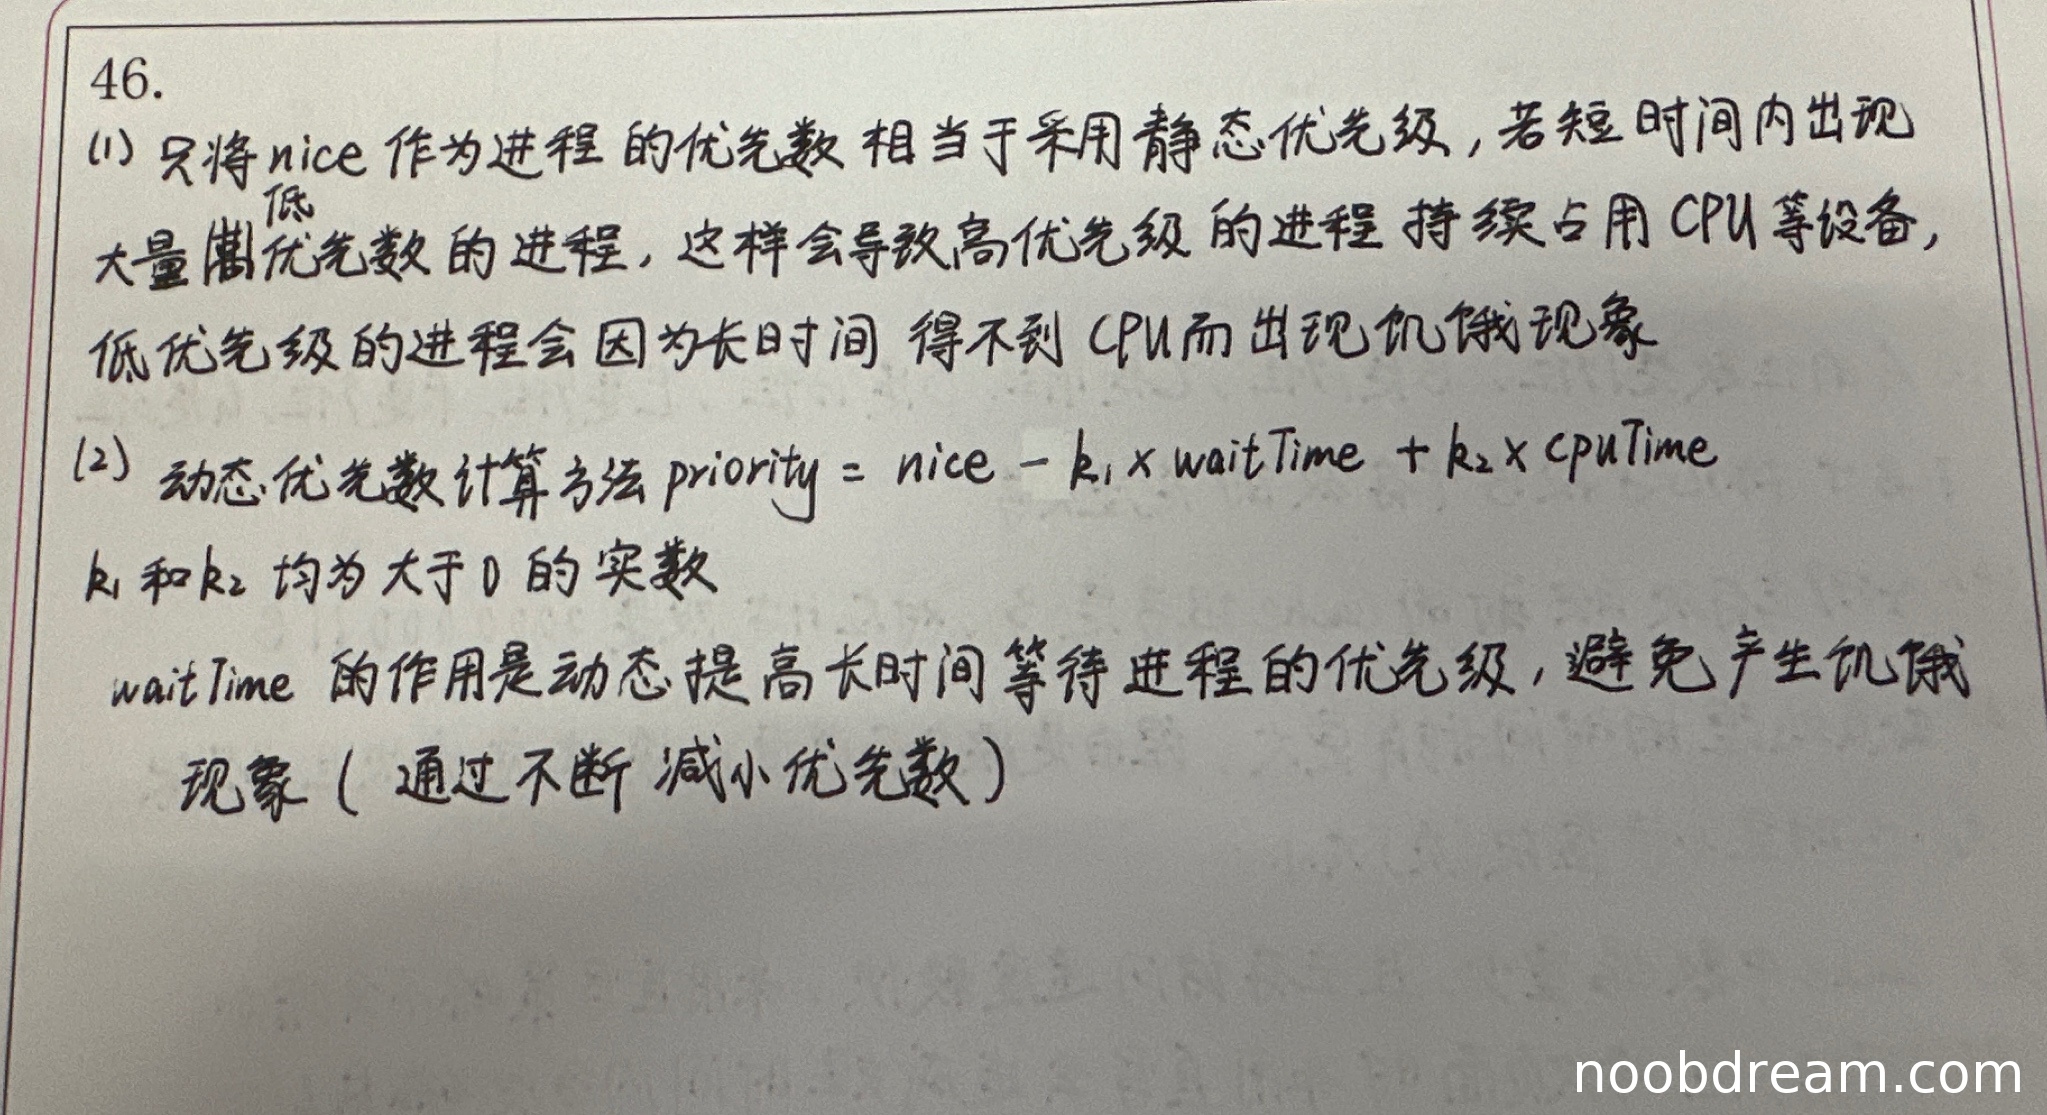 46.
(1) 只将nice作为进程的优先数相当于采用静态优先级,若短时间内出现
大量低优先数的进程,这样会导致高优先级的进程持续占用CPU等设备,
低优先级的进程会因为长时间得不到CPU而出现饥饿现象
(2) 动态优先数计算方法priority = nice - k₁ × waitTime + k₂ × cpuTime
k₁和k₂均为大于0的实数
waitTime的作用是动态提高长时间等待进程的优先级,避免产生饥饿
现象(通过不断减小优先数)
noobdream.com